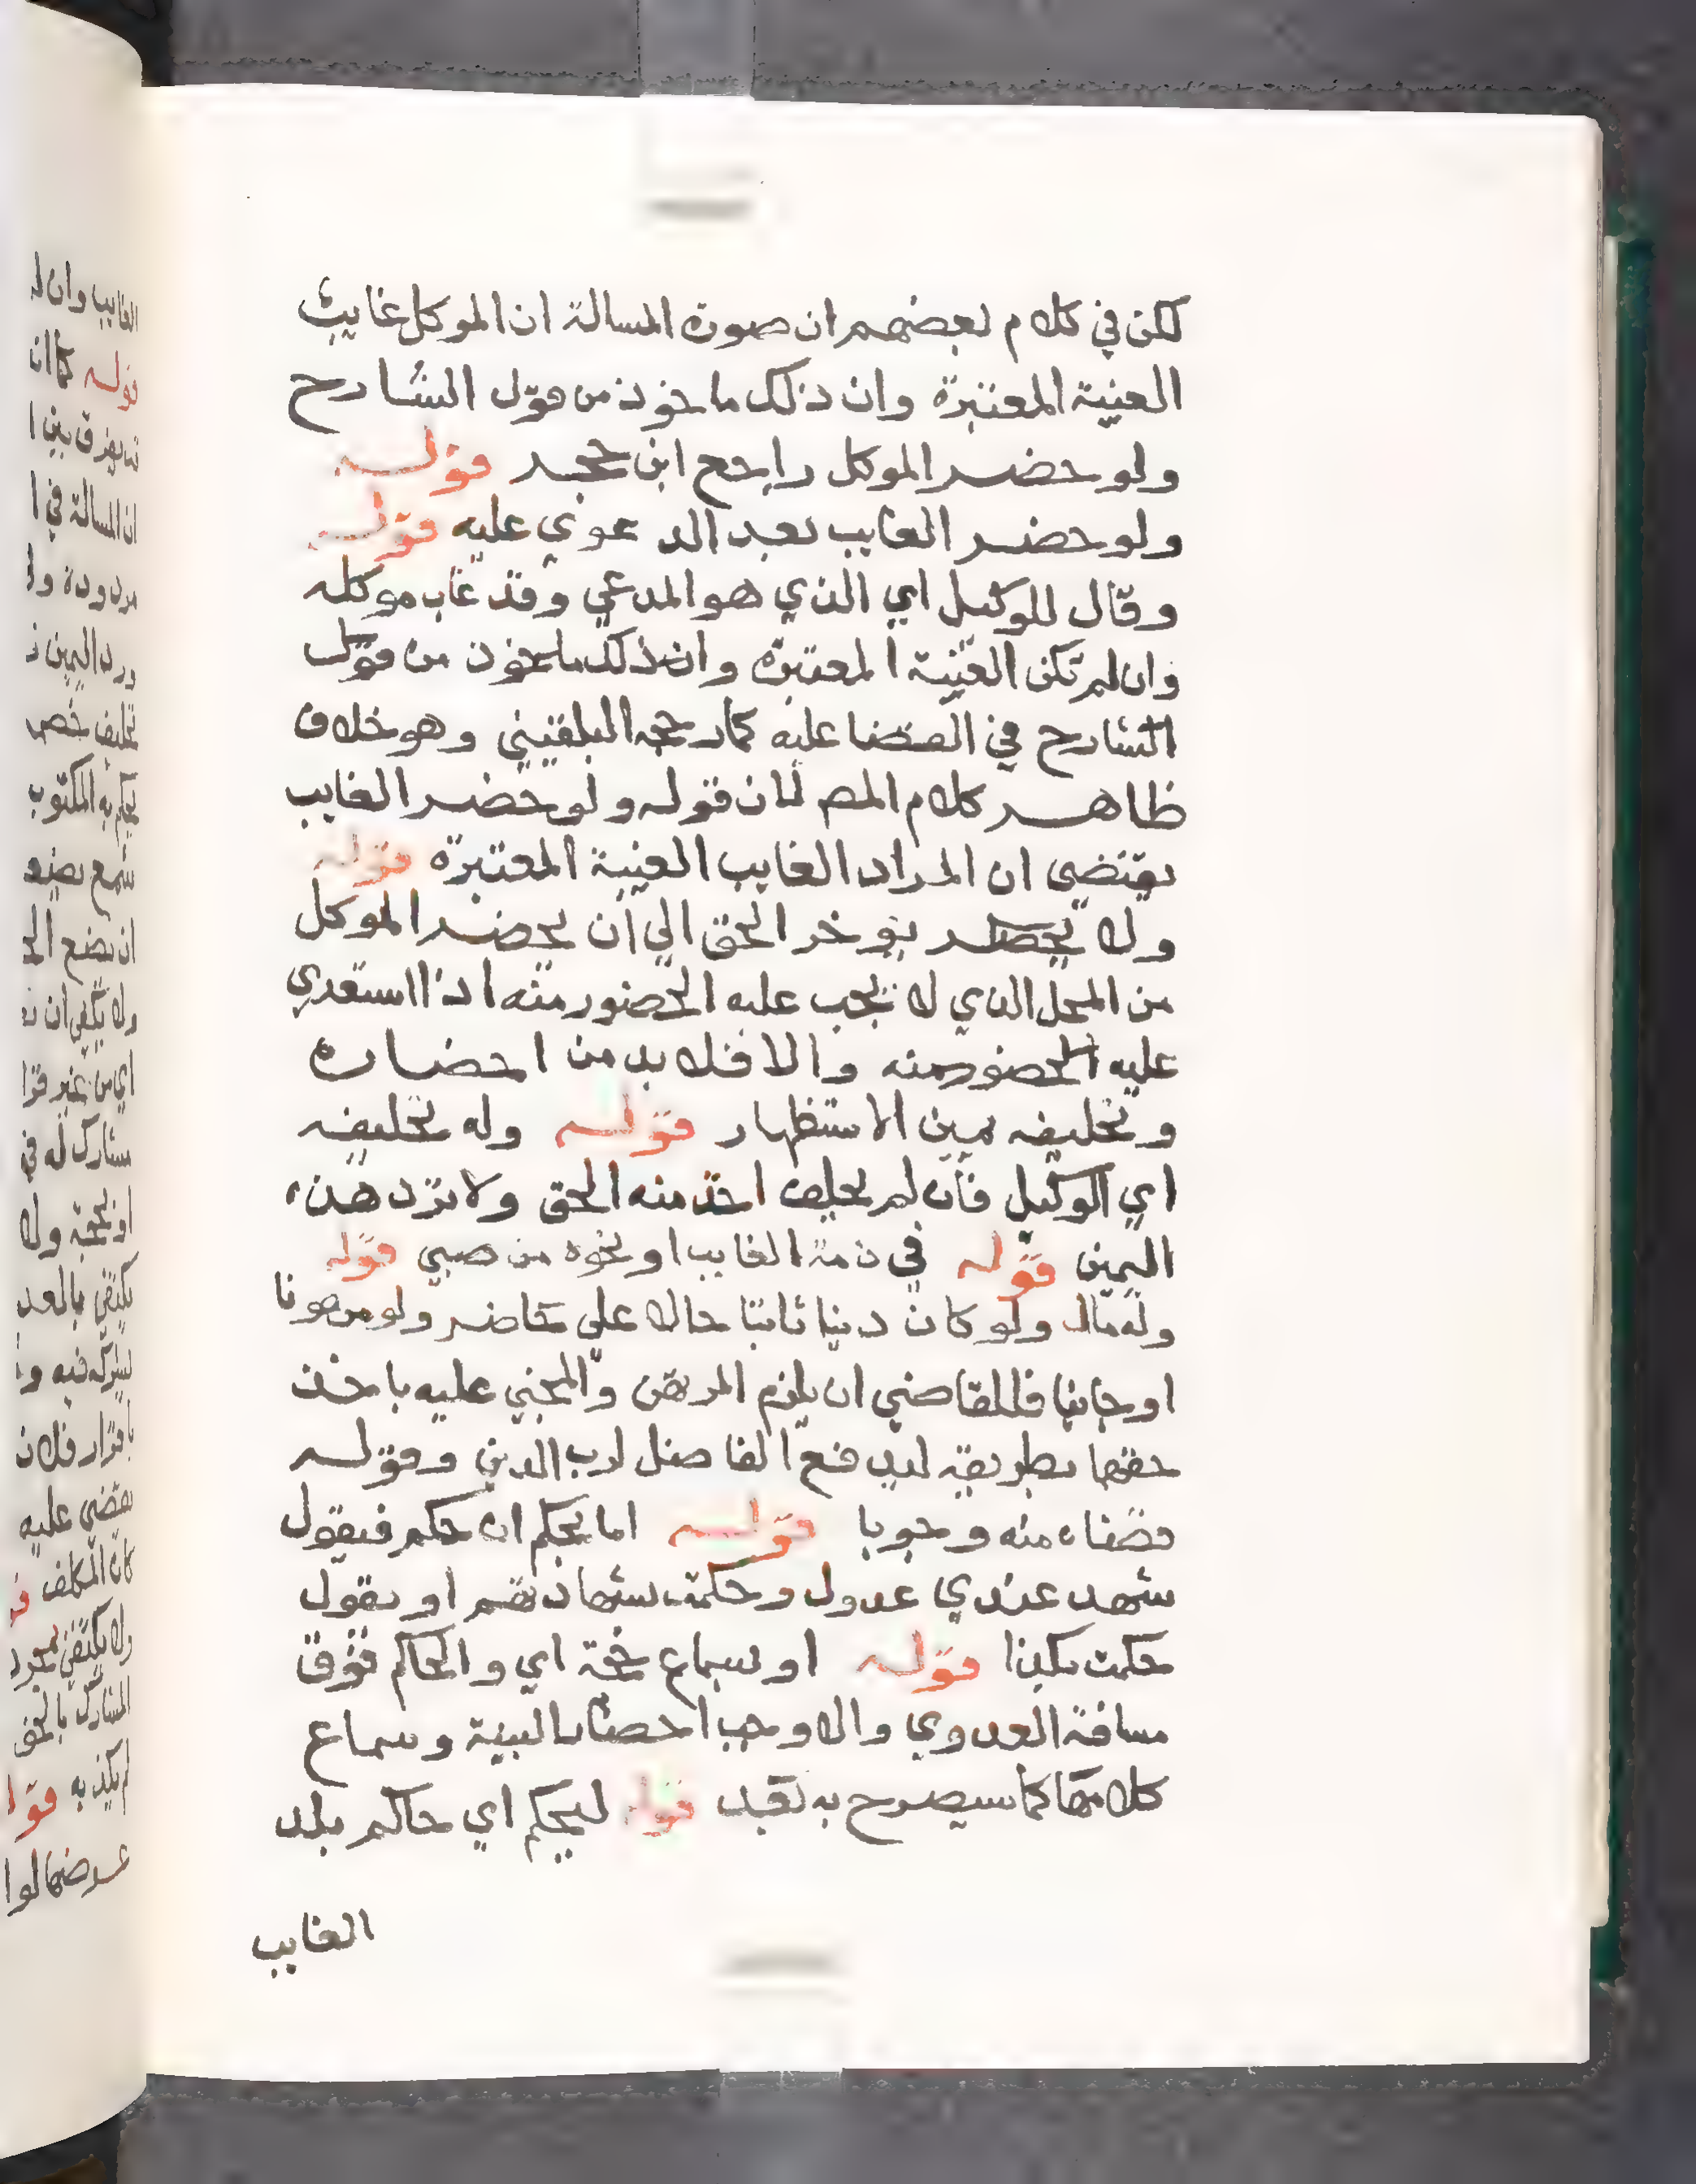 لكن في كلام بعضهم ان صورة المسالة ان الموكل غايب
الغيبة المعتبرة وان ذلك ماخوذ من قول الشارح
ولو حضر الموكل راجع ابن حجر قوله
ولو حضر الغايب بعد الدعوي عليه قوله
وقال للوكيل اي الذي هو المدعي وقد غاب موكله
وان لم تكن الغيبة المعتبرة وان ذلك ماخوذ من قول
الشارح في القضا عليه كما رجحه البلقيني وهو خلاف
ظاهر كلام المصم لان قوله ولو حضر الغايب
يقتضي ان المراد الغايب الغيبة المعتبرة قوله
ولا يوخر الحق الي ان يحضر الموكل
من المحل الذي لا يجب عليه الحضور منه اذا استعدي
عليه الحضور منه والا فلا بد من احضاره
وتحليفه يمين الاستظهار قوله وله تحليفه
اي الوكيل فان لم يحلف اخذ منه الحق ولا ترد هذه
اليمين قوله في ذمة الغايب او نحوه من صبي قوله
وله مال ولو كان دينا ثابتا حالا علي حاضر ولو مرهونا
او جانيا فللقاضي ان يلزم المرتهن والمجني عليه باخذ
حقهما بطريقه ليدفع الفاضل لرب الدين وقوله
قضاه منه وجوبا قوله اما بحكم ان حكم فيقول
شهد عندي عدول وحكمت بشهادتهم او يقول
حكمت بكذا قوله او سماع حجة اي والحاكم فوق
مسافة العدوي والا وجب احضار البينة وسماع
كلامها كما سيصرح به بعد قوله ليحكم اي حاكم بلد
الغايب
الغايب وان
قوله كما ان
ان المسالة في ا
ورد اليمين
ولا يكفي ان
اي من غير
مشارك له في
او بحجة ولا
يكتفي بالعد
يقضي عليه
كان المكلف
ولا يكتفي بمجرد
المشارك بالحق
لم يكذبه قو